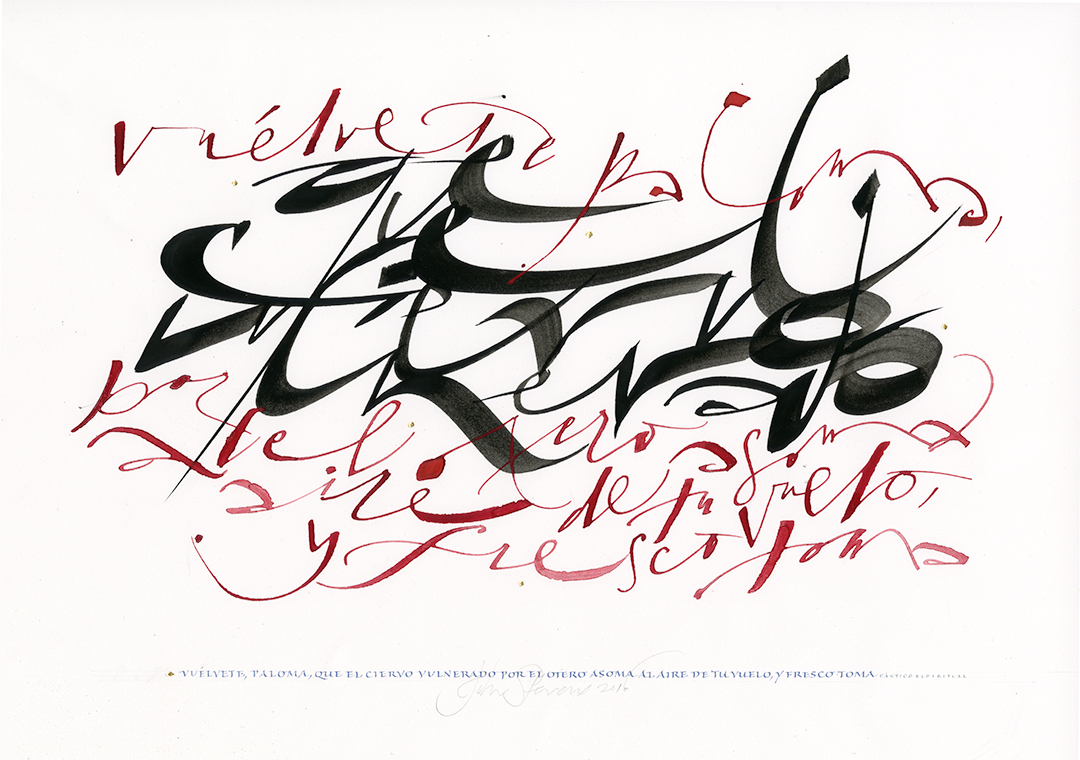 vuélvete paloma,
que el
ciervo
vulnerado
por el otero asoma
al aire de tu vuelo,
y fresco toma
VUÉLVETE, PALOMA, QUE EL CIERVO VULNERADO POR EL OTERO ASOMA AL AIRE DE TU VUELO, Y FRESCO TOMA CÁNTICO ESPIRITUAL
John Stevens 2016